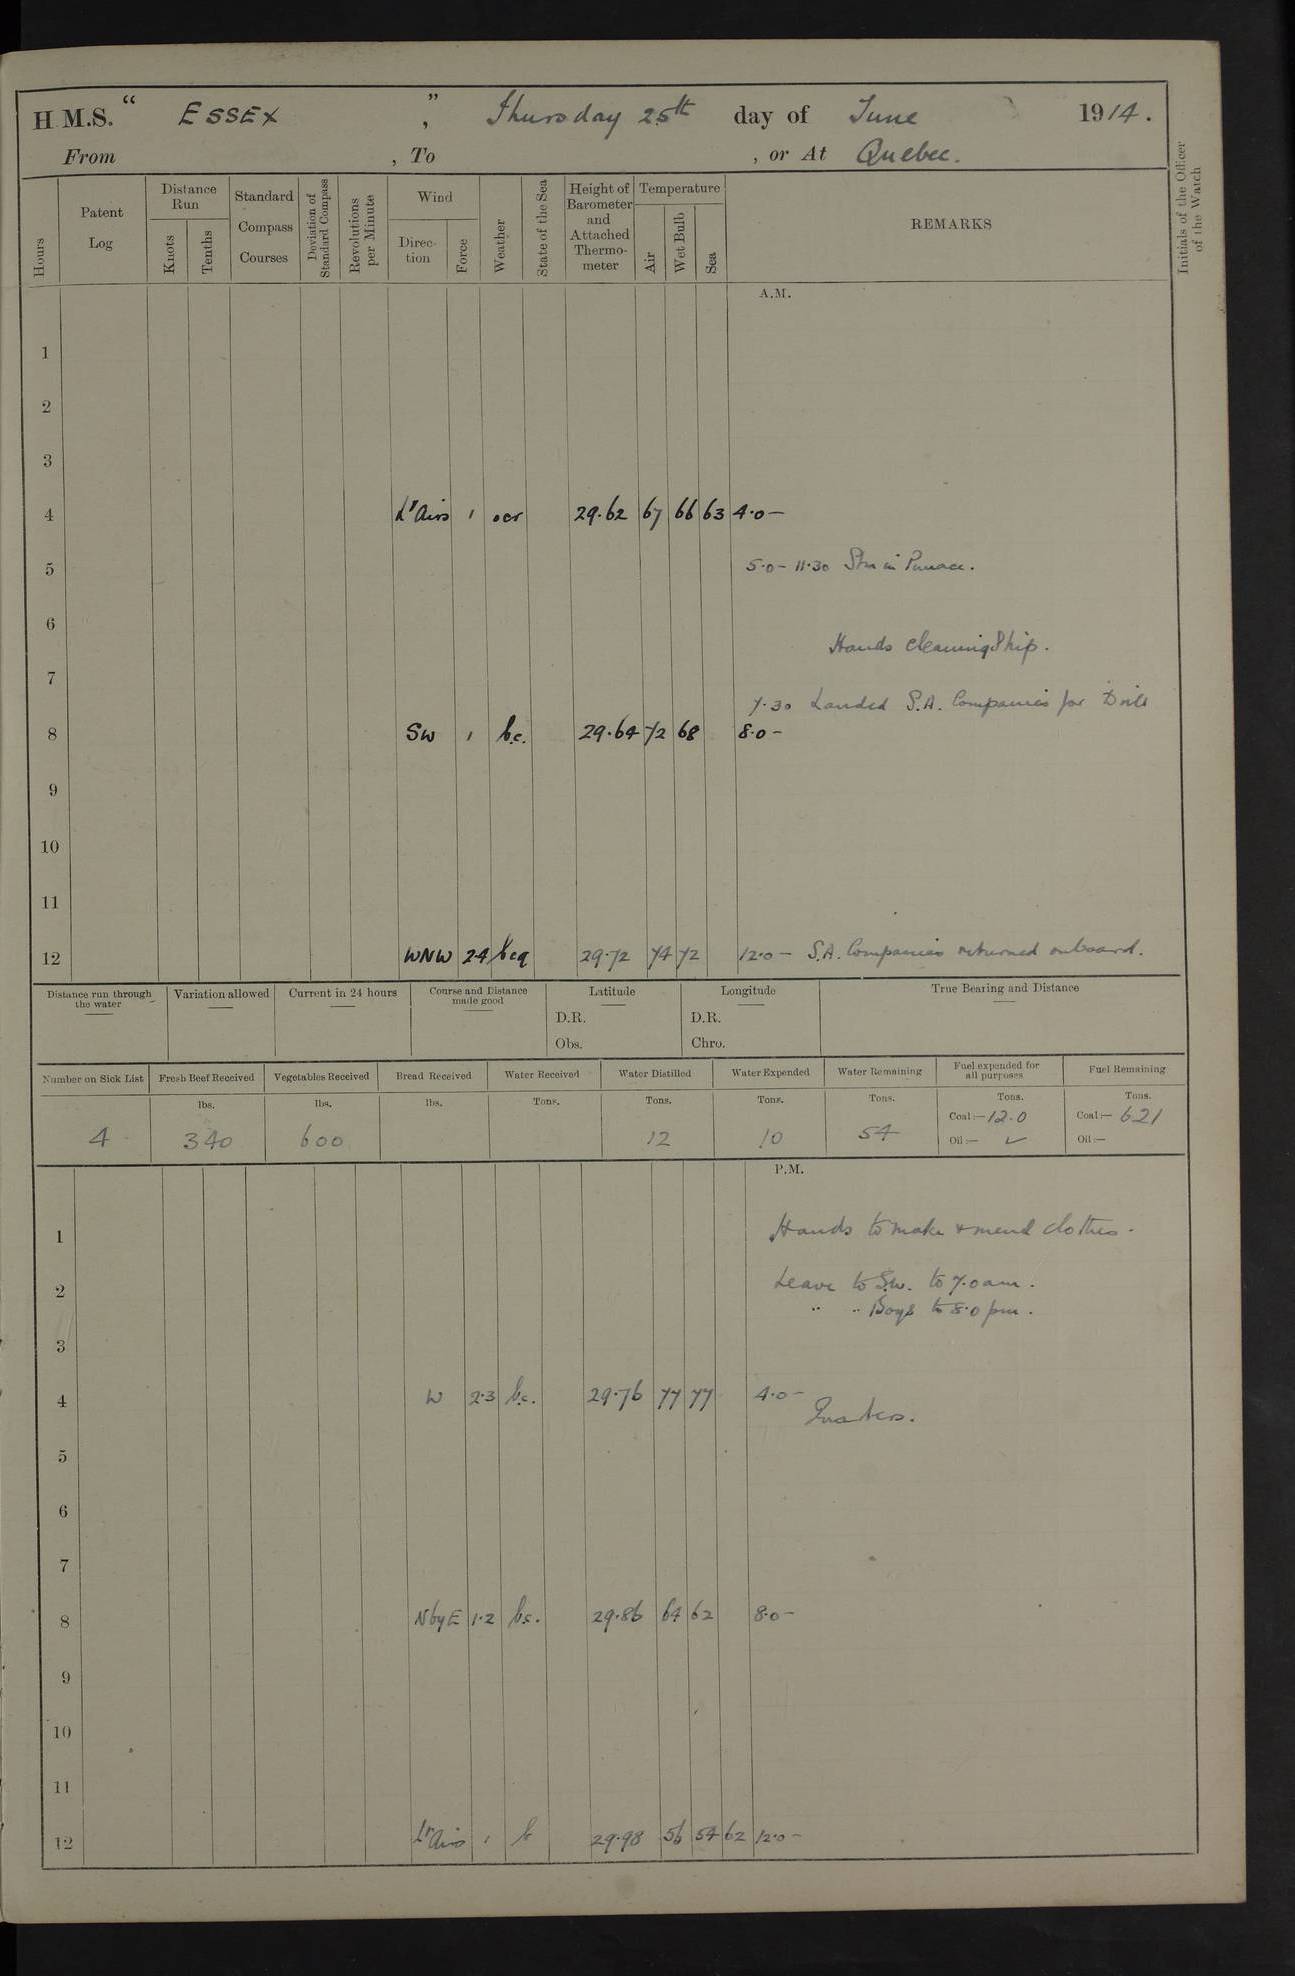 H.M.S. “ ESSEX ” , Thursday 25th day of June 1914.
From , To , or At Quebec.
Hours
Patent Log
Distance Run
Knots
Tenths
Standard Compass Courses
Deviation of Standard Compass
Revolutions per Minute
Wind
Direction
Force
Weather
State of the Sea
Height of Barometer and Attached Thermometer
Temperature
Air
Wet Bulb
Sea
REMARKS
Initials of the Officer of the Watch
A.M.
1
2
3
4 Lt Airs 1 ocr 29.62 67 66 63 4.0 —
5 5.0 – 11.30 Stm in Pinnace.
6
Hands cleaning Ship.
7
7.30 Landed S.A. Companies for Drill
8 SW 1 b.c. 29.64 72 68 8.0 –
9
10
11
12 WNW 24 bcq 29.72 74 72 12.0 – S.A. Companies returned onboard.
Distance run through the water
Variation allowed
Current in 24 hours
Course and Distance made good
Latitude
D.R.
Obs.
Longitude
D.R.
Chro.
True Bearing and Distance
Number on Sick List Fresh Beef Received Vegetables Received Bread Received Water Received Water Distilled Water Expended Water Remaining Fuel expended for all purposes Fuel Remaining
lbs. lbs. lbs. Tons. Tons. Tons. Tons. Tons. Tons.
Coal:— 12.0 Coal:— 621
4 340 600 12 10 54 Oil:— ✓ Oil:—
P.M.
1 Hands to make & mend clothes.
2 Leave to S.W. to 7.0 am.
" " Boys to 8.0 pm.
3
4 W 2.3 b.c. 29.76 77 77 4.0 –
Quarters.
5
6
7
8 NbyE 1.2 b.c. 29.86 64 62 8.0 –
9
10
11
12 Lt Airs 1 b 29.98 56 54 62 12.0 –